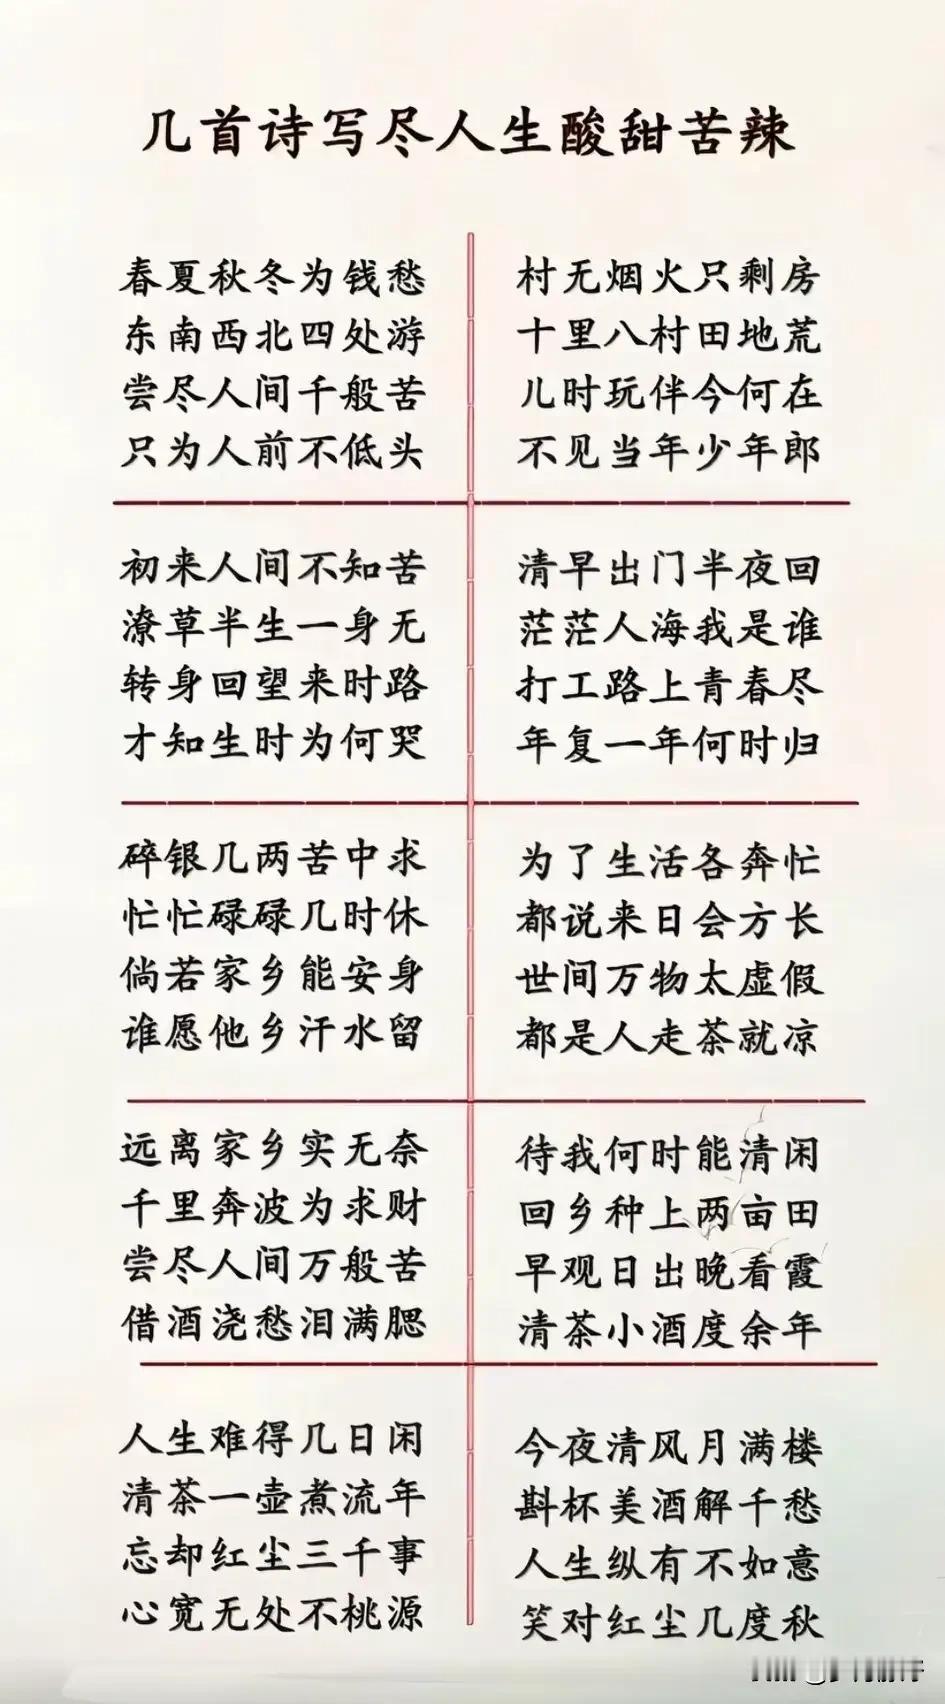 几首诗写尽人生酸甜苦辣
春夏秋冬为钱愁
东南西北四处游
尝尽人间千般苦
只为人前不低头
村无烟火只剩房
十里八村田地荒
儿时玩伴今何在
不见当年少年郎
初来人间不知苦
潦草半生一身无
转身回望来时路
才知生时为何哭
清早出门半夜回
茫茫人海我是谁
打工路上青春尽
年复一年何时归
碎银几两苦中求
忙忙碌碌几时休
倘若家乡能安身
谁愿他乡汗水留
为了生活各奔忙
都说来日会方长
世间万物太虚假
都是人走茶就凉
远离家乡实无奈
千里奔波为求财
尝尽人间万般苦
借酒浇愁泪满腮
待我何时能清闲
回乡种上两亩田
早观日出晚看霞
清茶小酒度余年
人生难得几日闲
清茶一壶煮流年
忘却红尘三千事
心宽无处不桃源
今夜清风月满楼
斟杯美酒解千愁
人生纵有不如意
笑对红尘几度秋